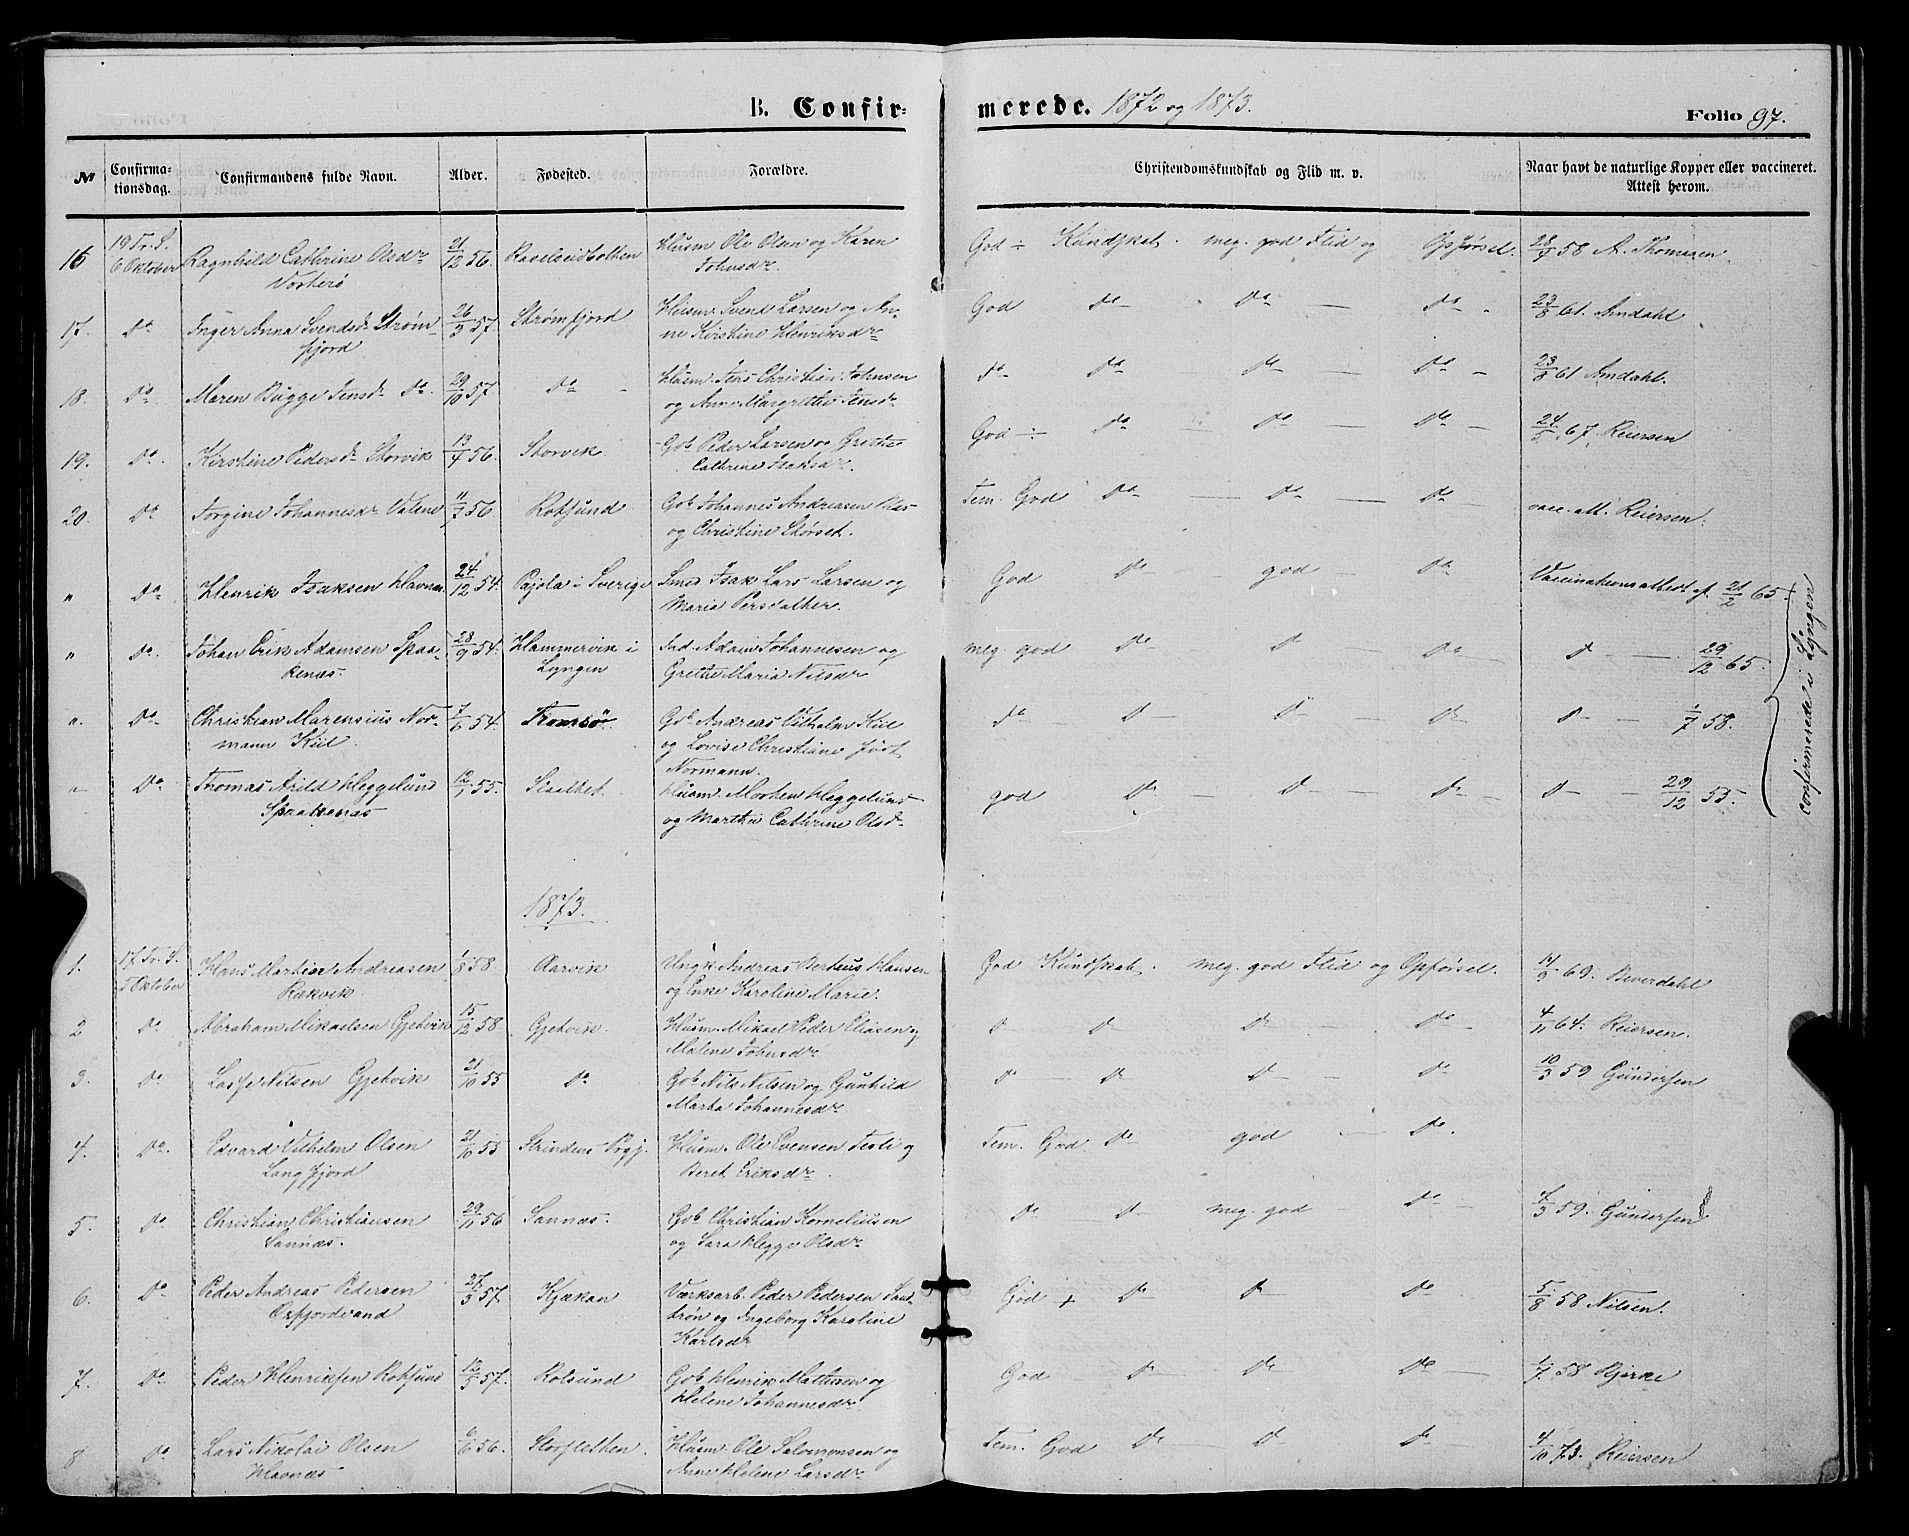 B. Confirmerede. 1872 og 1873. Folio 97.
№ Confirmationsdag. Confirmandens fulde Navn. Alder. Fødested. Forældre. Christendomskundskab og Flid m. v. Naar havt de naturlige Kopper eller vaccineret. Attest herom.
16 19 Tr. S. 6 Oktober Ragnhild Cathrine Olsdr Vorterø 21/12 56. Husm Ole Olsen og Karen Johnsdr. God ÷ Kundskab. meg. god Flid og Opførsel. 28/7 58 A. Thomasen
17. Do Inger Anna Svendsd. Strømfjord 26/3 57. Strømfjord Husm Svend Larsen og Anne Kirstine Henriksdr God Do Do Do 23/8 61. Amdahl
18. Do Maren Bugge Jensd. Do 29/10 57 Do Husm. Jens Christian Johnsen og Anne Margrethe Jensdr Do Do Do Do 23/8 61 Amdahl.
19. Do Kirstine Pedersdr Storvik 13/4 56. Storvik Gb. Peder Larsen og Grethe Cathrine Isaksdr. God ÷ Do Do Do 24/5 67. Reiersen
20. Do Jorgine Johannesdr Valene 11/7 56 Rotsund Gb. Johannes Andreasen og Christine Størset. Tem. God Do Do Do vacc. att. Reiersen.
" Do Henrik Isaksen Havnæs 24/12 54. Pajola i Sverige Smed Isak Lars Larsen og Maria Persdather. God Do god Do Vaccinationsattest af 21/2 65.
" Do Johan Erik Adamsen Spaakenæs. 28/9 54. Hammervik i Lyngen Ind. Adam Johannesen og Grethe Maria Nilsdr meg. god Do D Do D 29/12 65.
". Do Christian Marensius Normann Kiil. 7/6 54. Tromsö. Gb. Andreas Vilhelm Kiil og Lovise Christiane født Normann. Do D D D D 1/7 58.
" Do Thomas Arild Heggelund Spaakenæs 12/1 55. Husm. Morten Heggelund og Marthe Cathrine Olsdr god Do D Do D 29/12 55.
confirmerede i Lyngen
1873.
1. 17 Tr. S. 5 Oktober Hans Martin Andreasen Rækvik. 1/8 58. Aarvik Ungk. Andreas Berteus Hansen og Enke Karoline Marie. God Kundskab. meg. god Flid og Opførsel. 14/9 69. Beverdahl
2 Do Abraham Mikaelsen Gjetvik 15/12 58. Gjetvik. Husm. Mikael Peder Eliasen og Malene Johnsdr D D Do Do 4/11 64. Reiersen.
3. Do Lasse Nilsen Gjetvik 21/10 55 Do Gb. Nils Nilsen og Gunhild Marha Johannesdr. D D D Do 10/3 59 Gundersen
4. Do. Edvard Vilhelm Olsen Langfjord 21/10 55 Strindens Prgj. Husm. Ole Evensen og Beret Eriksdr. Tem. God Do god Do.
5. Do Christian Christiansen Sannæs. 29/11 56 Sannæs. Gb. Christian Korneliusen og Sara Hegge Olsdr. Do D meg. god Do 4/3 59. Gundersen
6. Do Peder Andreas Pedersen Oxfjordvand 27/3 57. Kjækan Værksarb. Peder Pedersen og Ingeborg Karoline Karlsdr God + Do D Do 5/8 58 Nilsen.
7. Do Peder Henriksen Rotsund 12/3 57. Rotsund Gb. Henrik Mathisen og Helene Johannesdr God D Do Do 1/7 58 Bjerke
8 Do Lars Nikolai Olsen Havnæs 6/6 56. Storsletten. Husm. Ole Salomonsen og Anne Helene Larsdr. Tem. God Do D Do 4/10 73. Reiersen